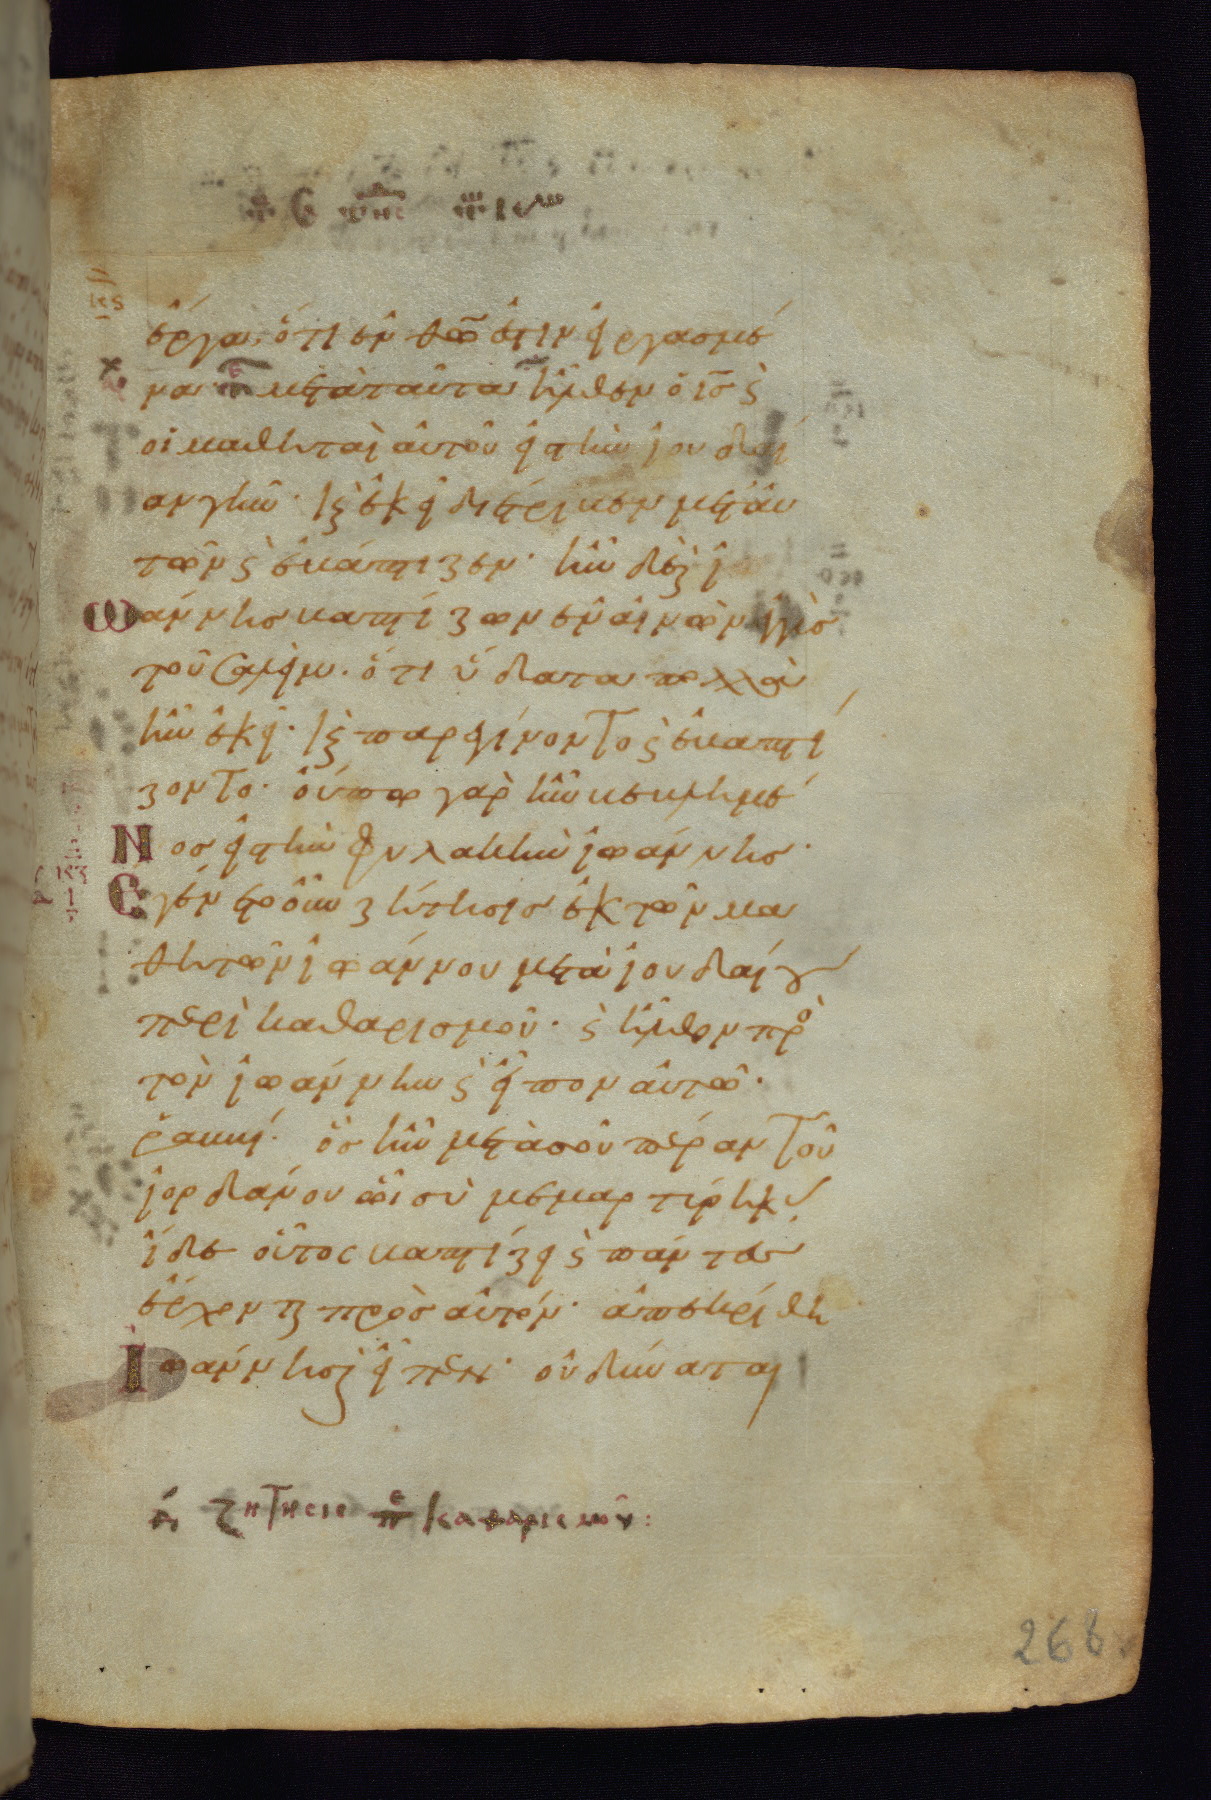 κϛ
ἔργα· ὅτι ἐν θῶ ἐστιν εἰργασμέ
να· μετὰ ταῦτα ἦλθεν ὁ ις ϗ
οἱ μαθηταὶ αὐτοῦ εἰς τὴν ἰουδαί
αν γῆν· κϗ ἐκεῖ διέτριβεν μετ᾽ αὐ
τῶν ϗ ἐβάπτιζεν· ἦν δὲ ϗ ἰ
ωάννης βαπτίζων ἐν αἰνὼν ἐγγὺς
τοῦ σαλείμ· ὅτι ὕδατα πολλὰ
ἦν ἐκεῖ· κϗ παρεγίνοντο ϗ ἐβαπτί
ζοντο· οὔπω γὰρ ἦν βεβλημέ
Νος εἰς τὴν φυλακὴν ἰωάννης·
κζ
Ἐγένετο οὖν ζήτησις ἐκ τῶν μα
θητῶν ἰωάννου μετὰ ἰουδαίου
περὶ καθαρισμοῦ· ϗ ἦλθον πρὸ
τὸν ἰωάννην ϗ εἶπον αὐτῶ·
ῥαββί· ὃς ἦν μετὰ σοῦ πέραν τοῦ
ἰορδάνου ὧι σὺ μεμαρτύρηκας
ἴδε οὗτος βαπτίζει ϗ πάντες
ἔρχονται πρὸς αὐτόν· ἀπεκρίθη
Ἰωάννης ϗ εἶπεν· οὐ δύναται
ζητησις π καθαρισμοῦ:
268